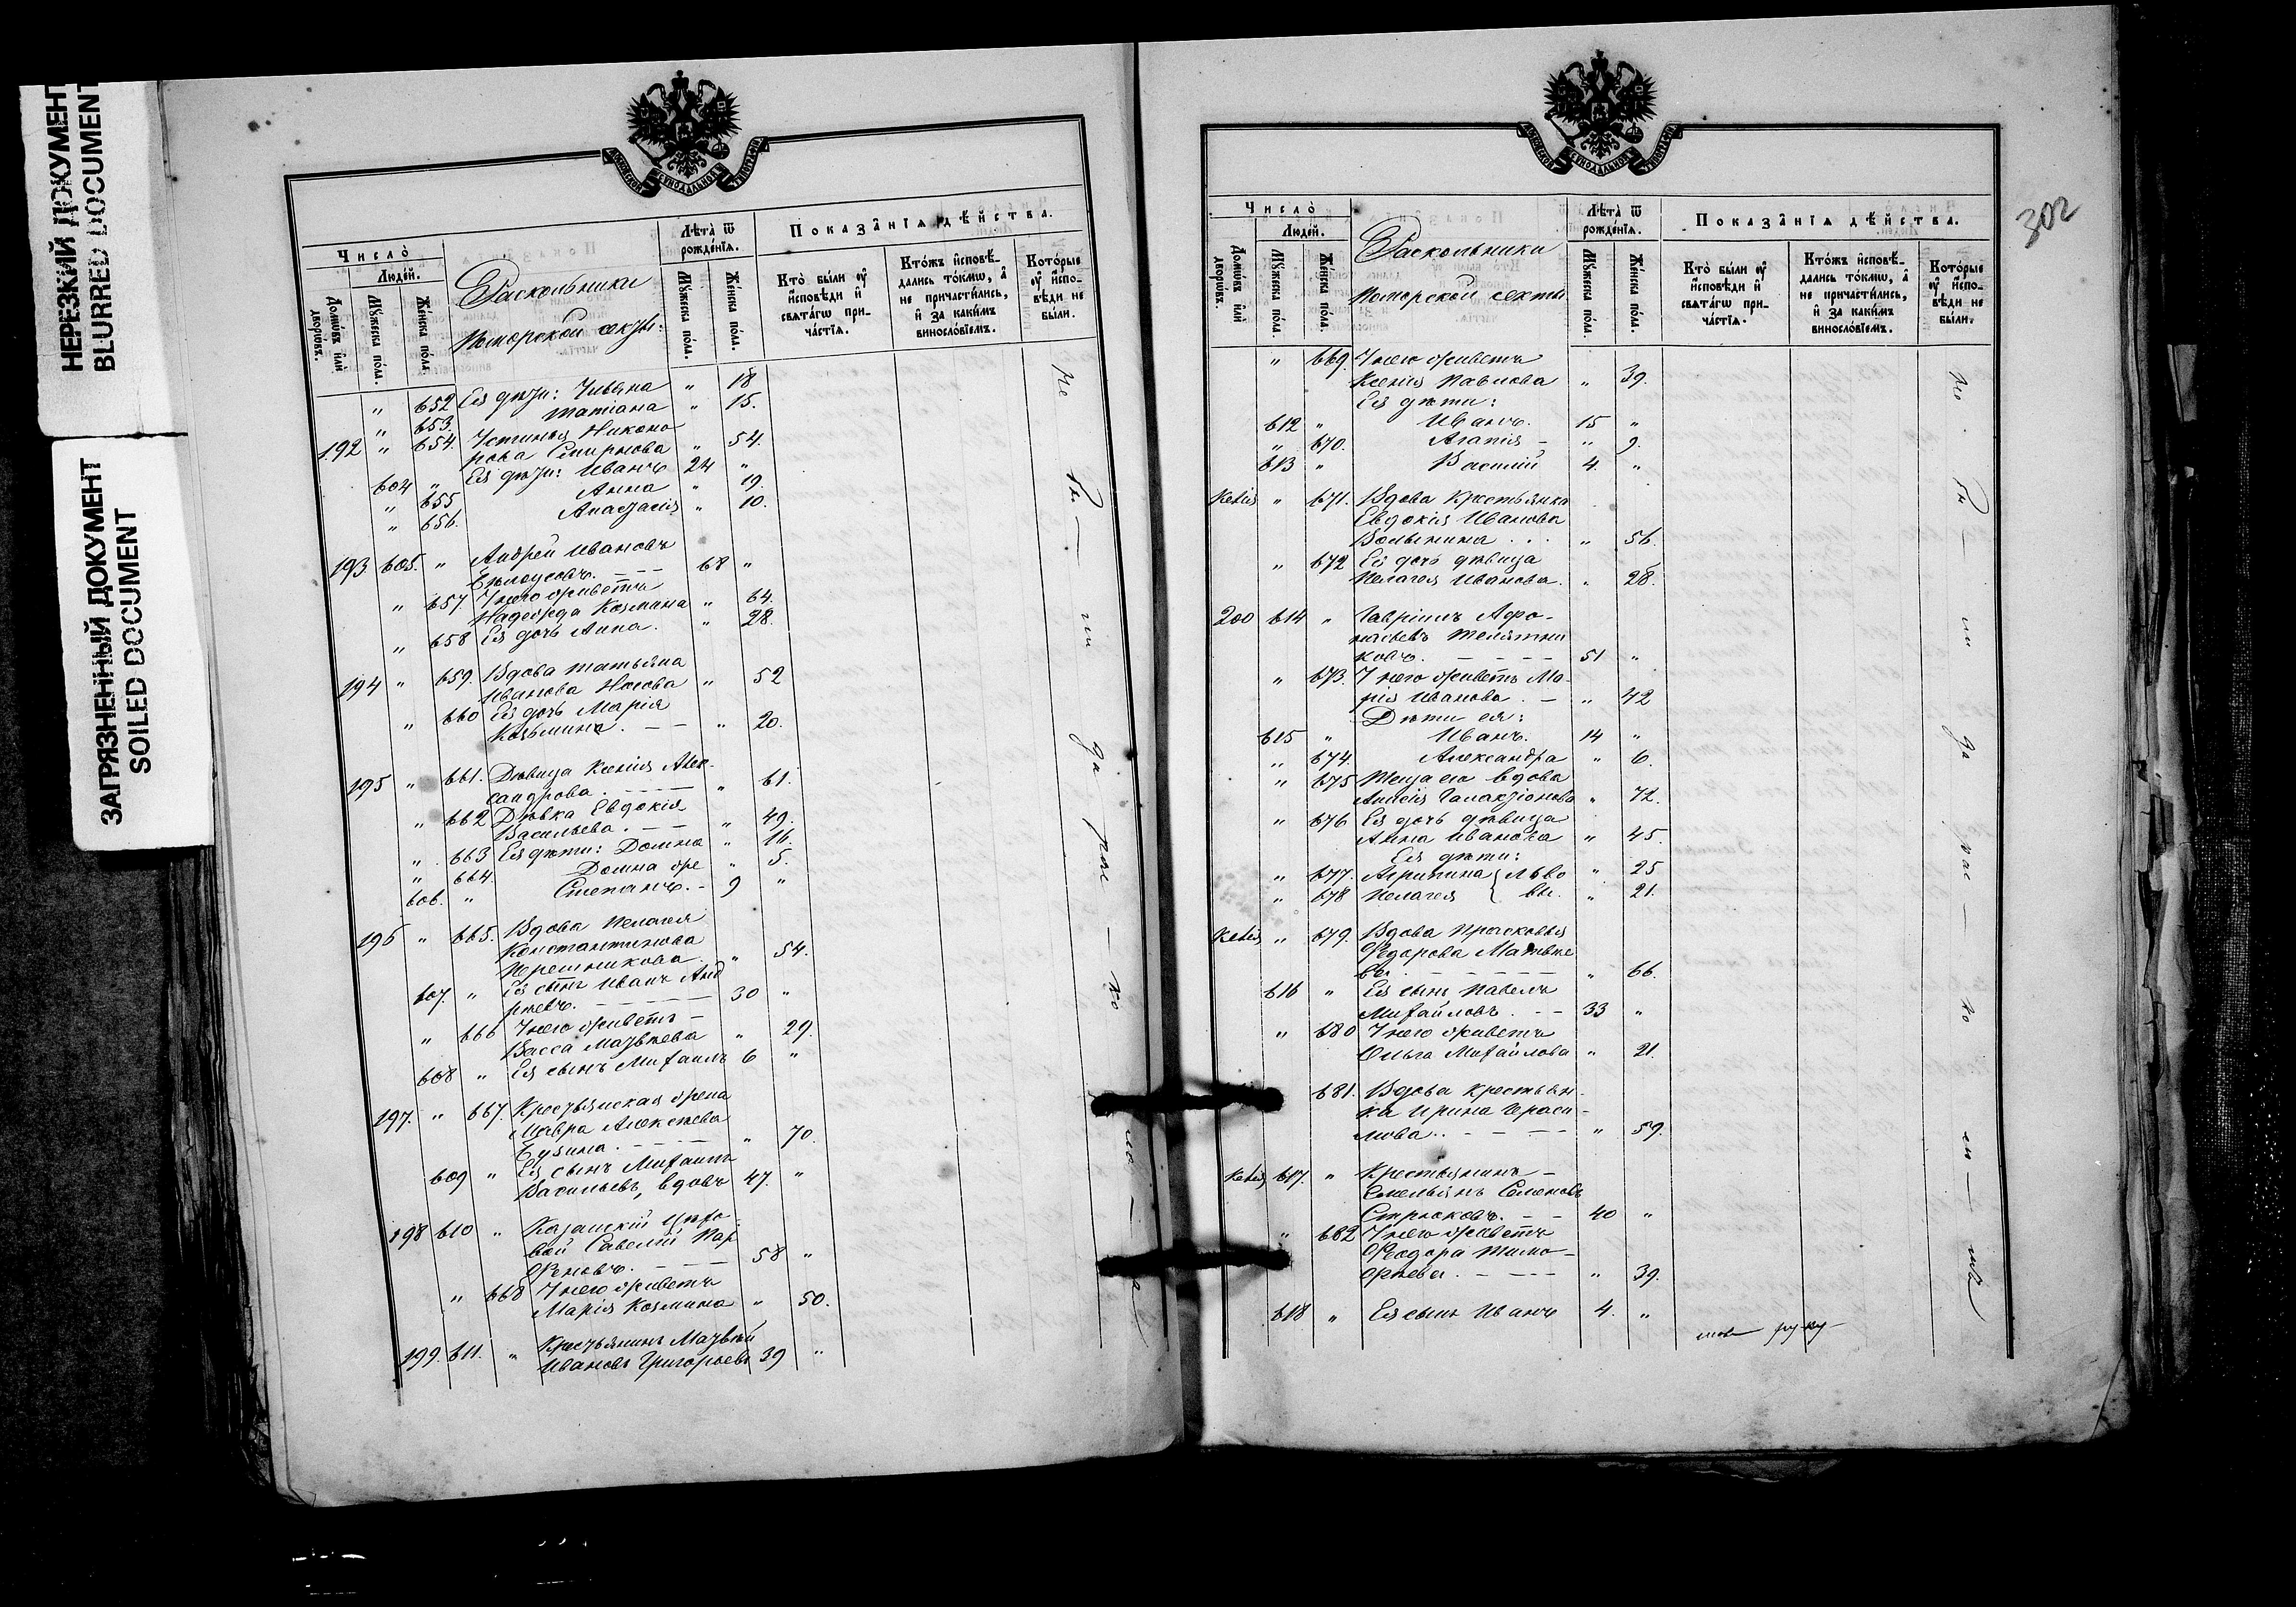 НЕРЕЗКИЙ ДОКУМЕНТ
BLURRED DOCUMENT
ЗАГРЯЗНЕННЫЙ ДОКУМЕНТ
SOILED DOCUMENT
МОСКОВСКОЙ СѴНОДАЛЬНОЙ ТИПОГРАФІИ
Число̀
Люде́й.
Домѡ́въ и҆лѝ дворѡ́въ.
Мꙋ́жеска по́ла.
Же́нска по́ла.
Раскольники
Поморской секты:
Лѣта̀ ѿ рожде́нїѧ.
Мꙋ́жеска по́ла.
Же́нска по́ла.
Показа̑нїѧ дѣ́йства.
Кто̀ бы́ли ᲂу҆ и҆сповѣ́ди и҆ свѧта́гѡ прича́стїѧ.
Кто́жъ и҆сповѣ́дались то́кмѡ, а҆ не причасти́лись, и҆ за каки́мъ винослоі́емъ.
Кото́рые ᲂу҆ и҆сповѣ́ди не бы́ли.
" 652 Ея дѣти: Ульяна " 18
" 653. Татіана " 15.
192 " 654. Устинья Никоно
рова Смирнова " 54.
604 " Ея дѣти: Иванъ 24 "
" 655 Анна " 19.
" 656. Анастасія " 10.
193 605. " Андрей Ивановъ
Бѣлоусовъ. 68 "
" 657 У него живетъ
Надежда Козмина " 64.
" 658 Ея дочь Анна. " 28.
194 " 659. Вдова Татьяна
Иванова Носова " 52
" 660 Ея дочь Марія
Козьмина. " 20.
195 " 661. Дѣвица Ксенія Алек-
сандрова. " 61.
" 662 Дѣвка Евдокія
Васильева. " 49.
" 663 Ея дѣти: Домна " 16.
" 664. Домна же " 5.
606. " Степанъ. 9 "
196 " 665. Вдова Пелагея
Константинова
" 54.
607. " Ея сынъ Иванъ Анд
рѣевъ. 30 "
" 666 У него живетъ
Васса Матвѣева " 29.
608 " Ея сынъ Михаилъ 6 "
197. " 667. Крестьянская жена
Мавра Алексѣева
Бузина. " 70.
609 " Ея сынъ Михаилъ
Васильевъ, вдовъ 47. "
198 610 " Казанскій цѣхо
вой Савелій Пар
ѳеновъ. 58 "
" 668 У него живетъ
Марія Козмина " 50.
199. 611. " Крестьянинъ Матвѣй
Ивановъ Григорьевъ 39 "
302
МОСКОВСКОЙ СѴНОДАЛЬНОЙ ТИПОГРАФІИ
Число̀
Люде́й.
Домѡ́въ и҆лѝ дворѡ́въ.
Мꙋ́жеска по́ла.
Же́нска по́ла.
Раскольники
Поморской секты
Лѣта̀ ѿ рожде́нїѧ.
Мꙋ́жеска по́ла.
Же́нска по́ла.
Показа̑нїѧ дѣ́йства.
Кто̀ бы́ли ᲂу҆ и҆сповѣ́ди и҆ свѧта́гѡ прича́стїѧ.
Кто́жъ и҆сповѣ́дались то́кмѡ, а҆ не причасти́лись, и҆ за каки́мъ винослоі́емъ.
Кото́рые ᲂу҆ и҆сповѣ́ди не бы́ли.
" 669. У него живетъ
Ксенія Павлова " 39.
Ея дѣти:
612 " Иванъ. 15 "
" 670. Агапія " 9.
613 " Василій 4. "
Келія " 671. Вдова Крестьянка
Евдокія Иванова
Волынкина " 56.
" 672 Ея дочь дѣвица
Пелагея Иванова. " 28.
200 614 " Гавріилъ Афо-
насьевъ Телятни
ковъ. 51 "
" 673. У него живетъ Ма-
рія Иванова. " 42
Дѣти ея:
615 " Иванъ. 14 "
" 674. Александра " 6.
" 675 Теща его вдова
Анисія Галактіонова " 72.
" 676 Ея дочь дѣвица
Анна Иванова " 45.
Ея дѣти:
" 677. Агрипина { Льво " 25
" 678 Пелагея { вы. " 21.
Келія " 679. Вдова Прасковья
Ѳедорова Матвѣе
ва. " 66.
616 " Ея сынъ Павелъ
Михайловъ. 33 "
" 680 У него живетъ
Ольга Михайлова " 21.
681. Вдова крестьян-
ка Ирина Гераси-
мова. " 59.
Келія 617. " Крестьянинъ
Емельянъ Семеновъ
Стрюковъ. 40 "
" 682 У него живетъ
Ѳеодора Тимо-
ѳѣева. " 39.
618 " Ея сынъ Иванъ 4. "
руку